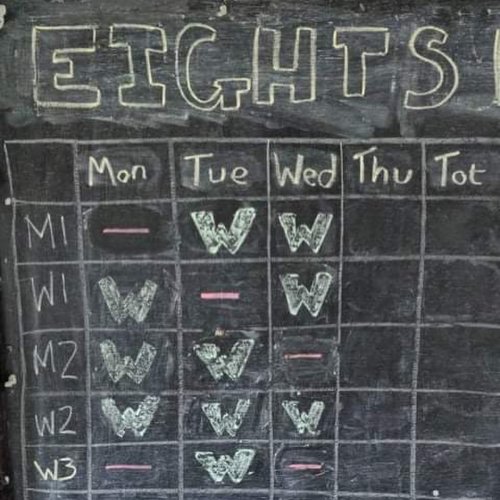 EIGHTS
Mon Tue Wed Thu Tot
M1 — W W
W1 W — W
M2 W W —
W2 W W W
W3 — W —